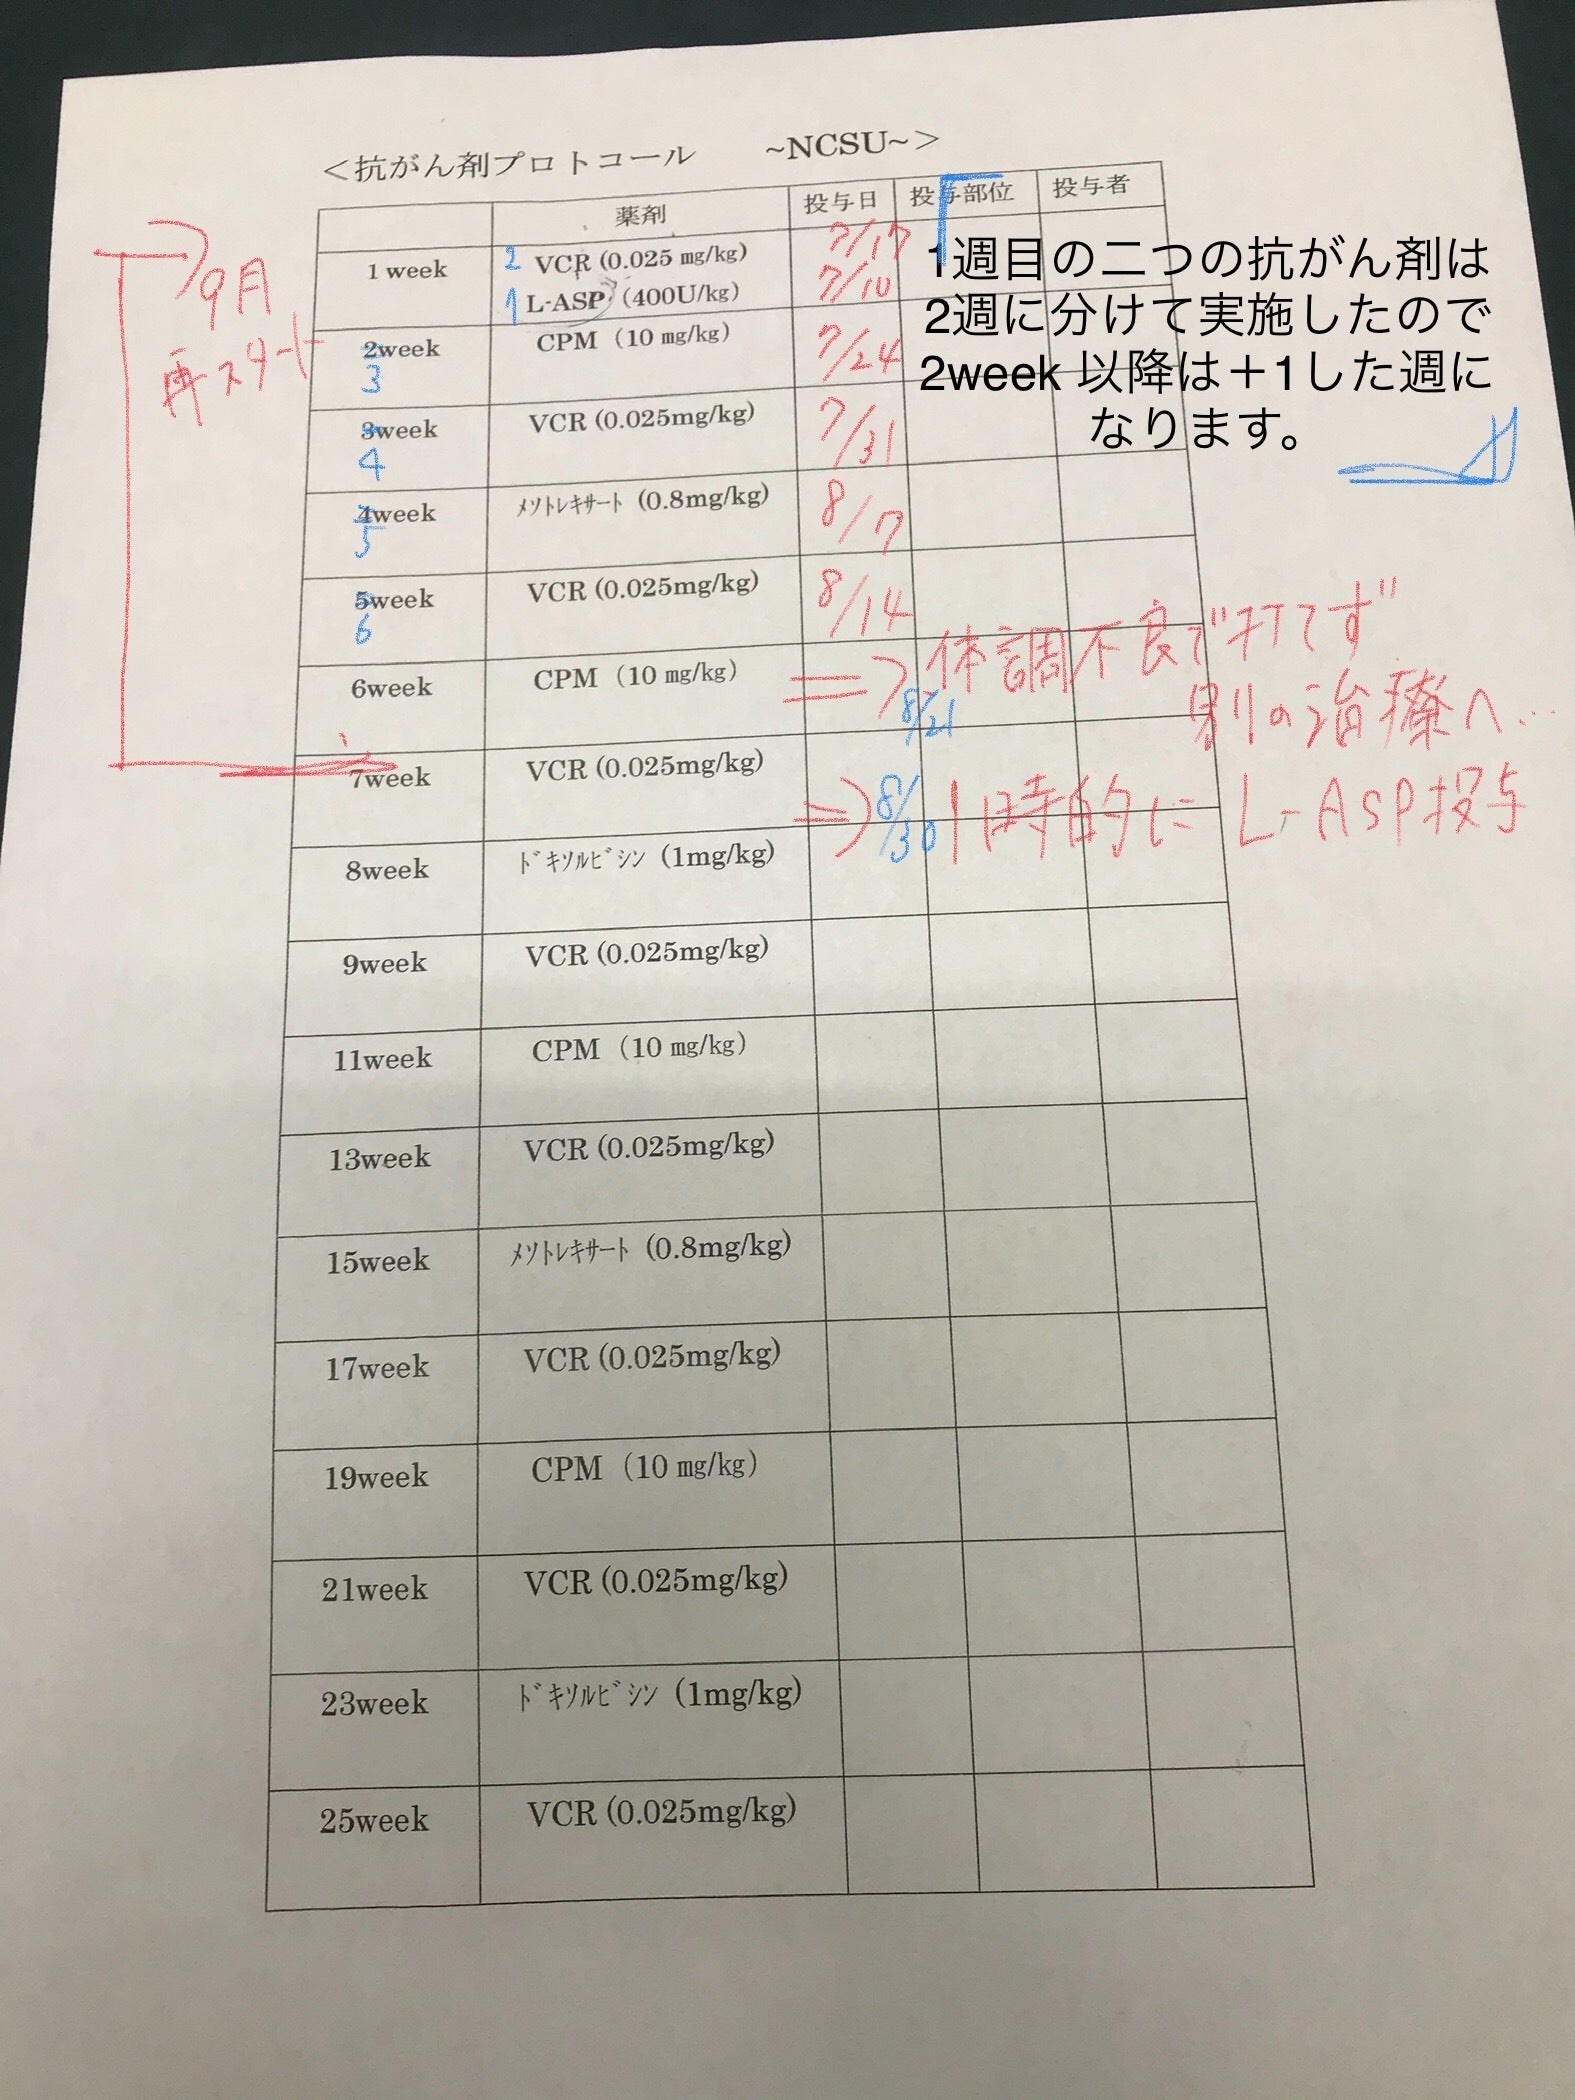 ＜抗がん剤プロトコール　～NCSU～＞
薬剤 投与日 投与部位 投与者
9月
再スタート
1 week 2 VCR (0.025 mg/kg) 7/17
1 L-ASP (400U/kg) 7/10
1週目の二つの抗がん剤は
2週に分けて実施したので
2week 以降は＋1した週に
なります。
2week 3 CPM（10 mg/kg） 7/24
3week 4 VCR (0.025mg/kg) 7/31
4week 5 ﾒｿﾄﾚｷｻｰﾄ (0.8mg/kg) 8/7
5week 6 VCR (0.025mg/kg) 8/14
6week CPM（10 mg/kg） ⇒ 8/21 体調不良で打てず
別の治療へ…
7week VCR (0.025mg/kg) ⇒ 8/30 1時的に L-ASP投与
8week ﾄﾞｷｿﾙﾋﾞｼﾝ (1mg/kg)
9week VCR (0.025mg/kg)
11week CPM（10 mg/kg）
13week VCR (0.025mg/kg)
15week ﾒｿﾄﾚｷｻｰﾄ (0.8mg/kg)
17week VCR (0.025mg/kg)
19week CPM（10 mg/kg）
21week VCR (0.025mg/kg)
23week ﾄﾞｷｿﾙﾋﾞｼﾝ (1mg/kg)
25week VCR (0.025mg/kg)